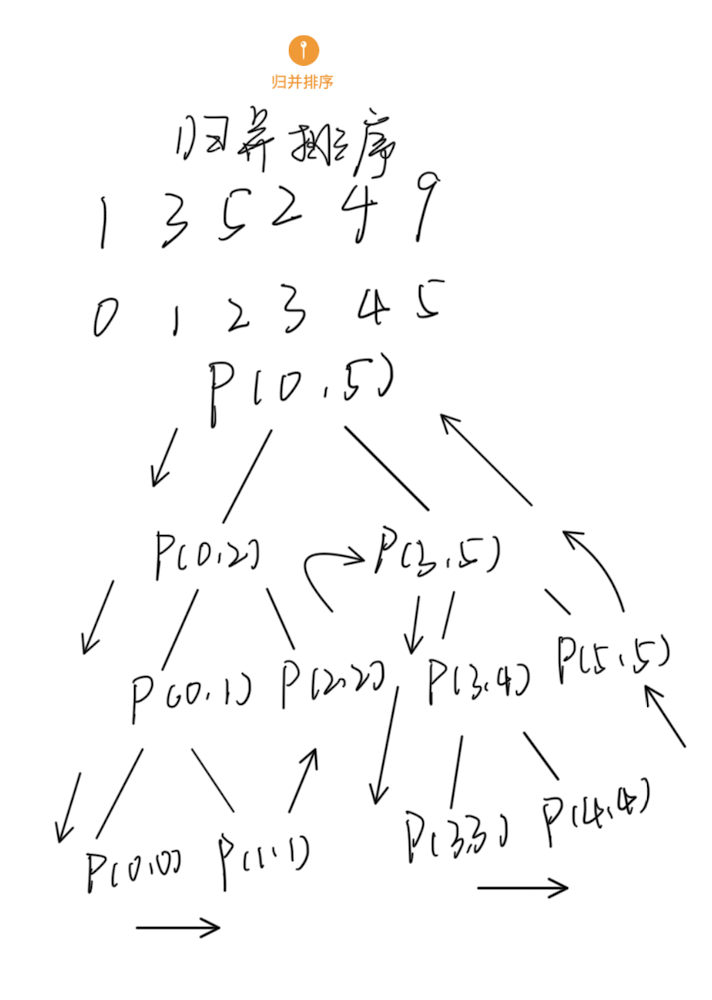 归并排序
归并排序
1 3 5 2 4 9
0 1 2 3 4 5
P(0,5)
P(0,2) P(3,5)
P(0,1) P(2,2) P(3,4) P(5,5)
P(0,0) P(1,1) P(3,3) P(4,4)